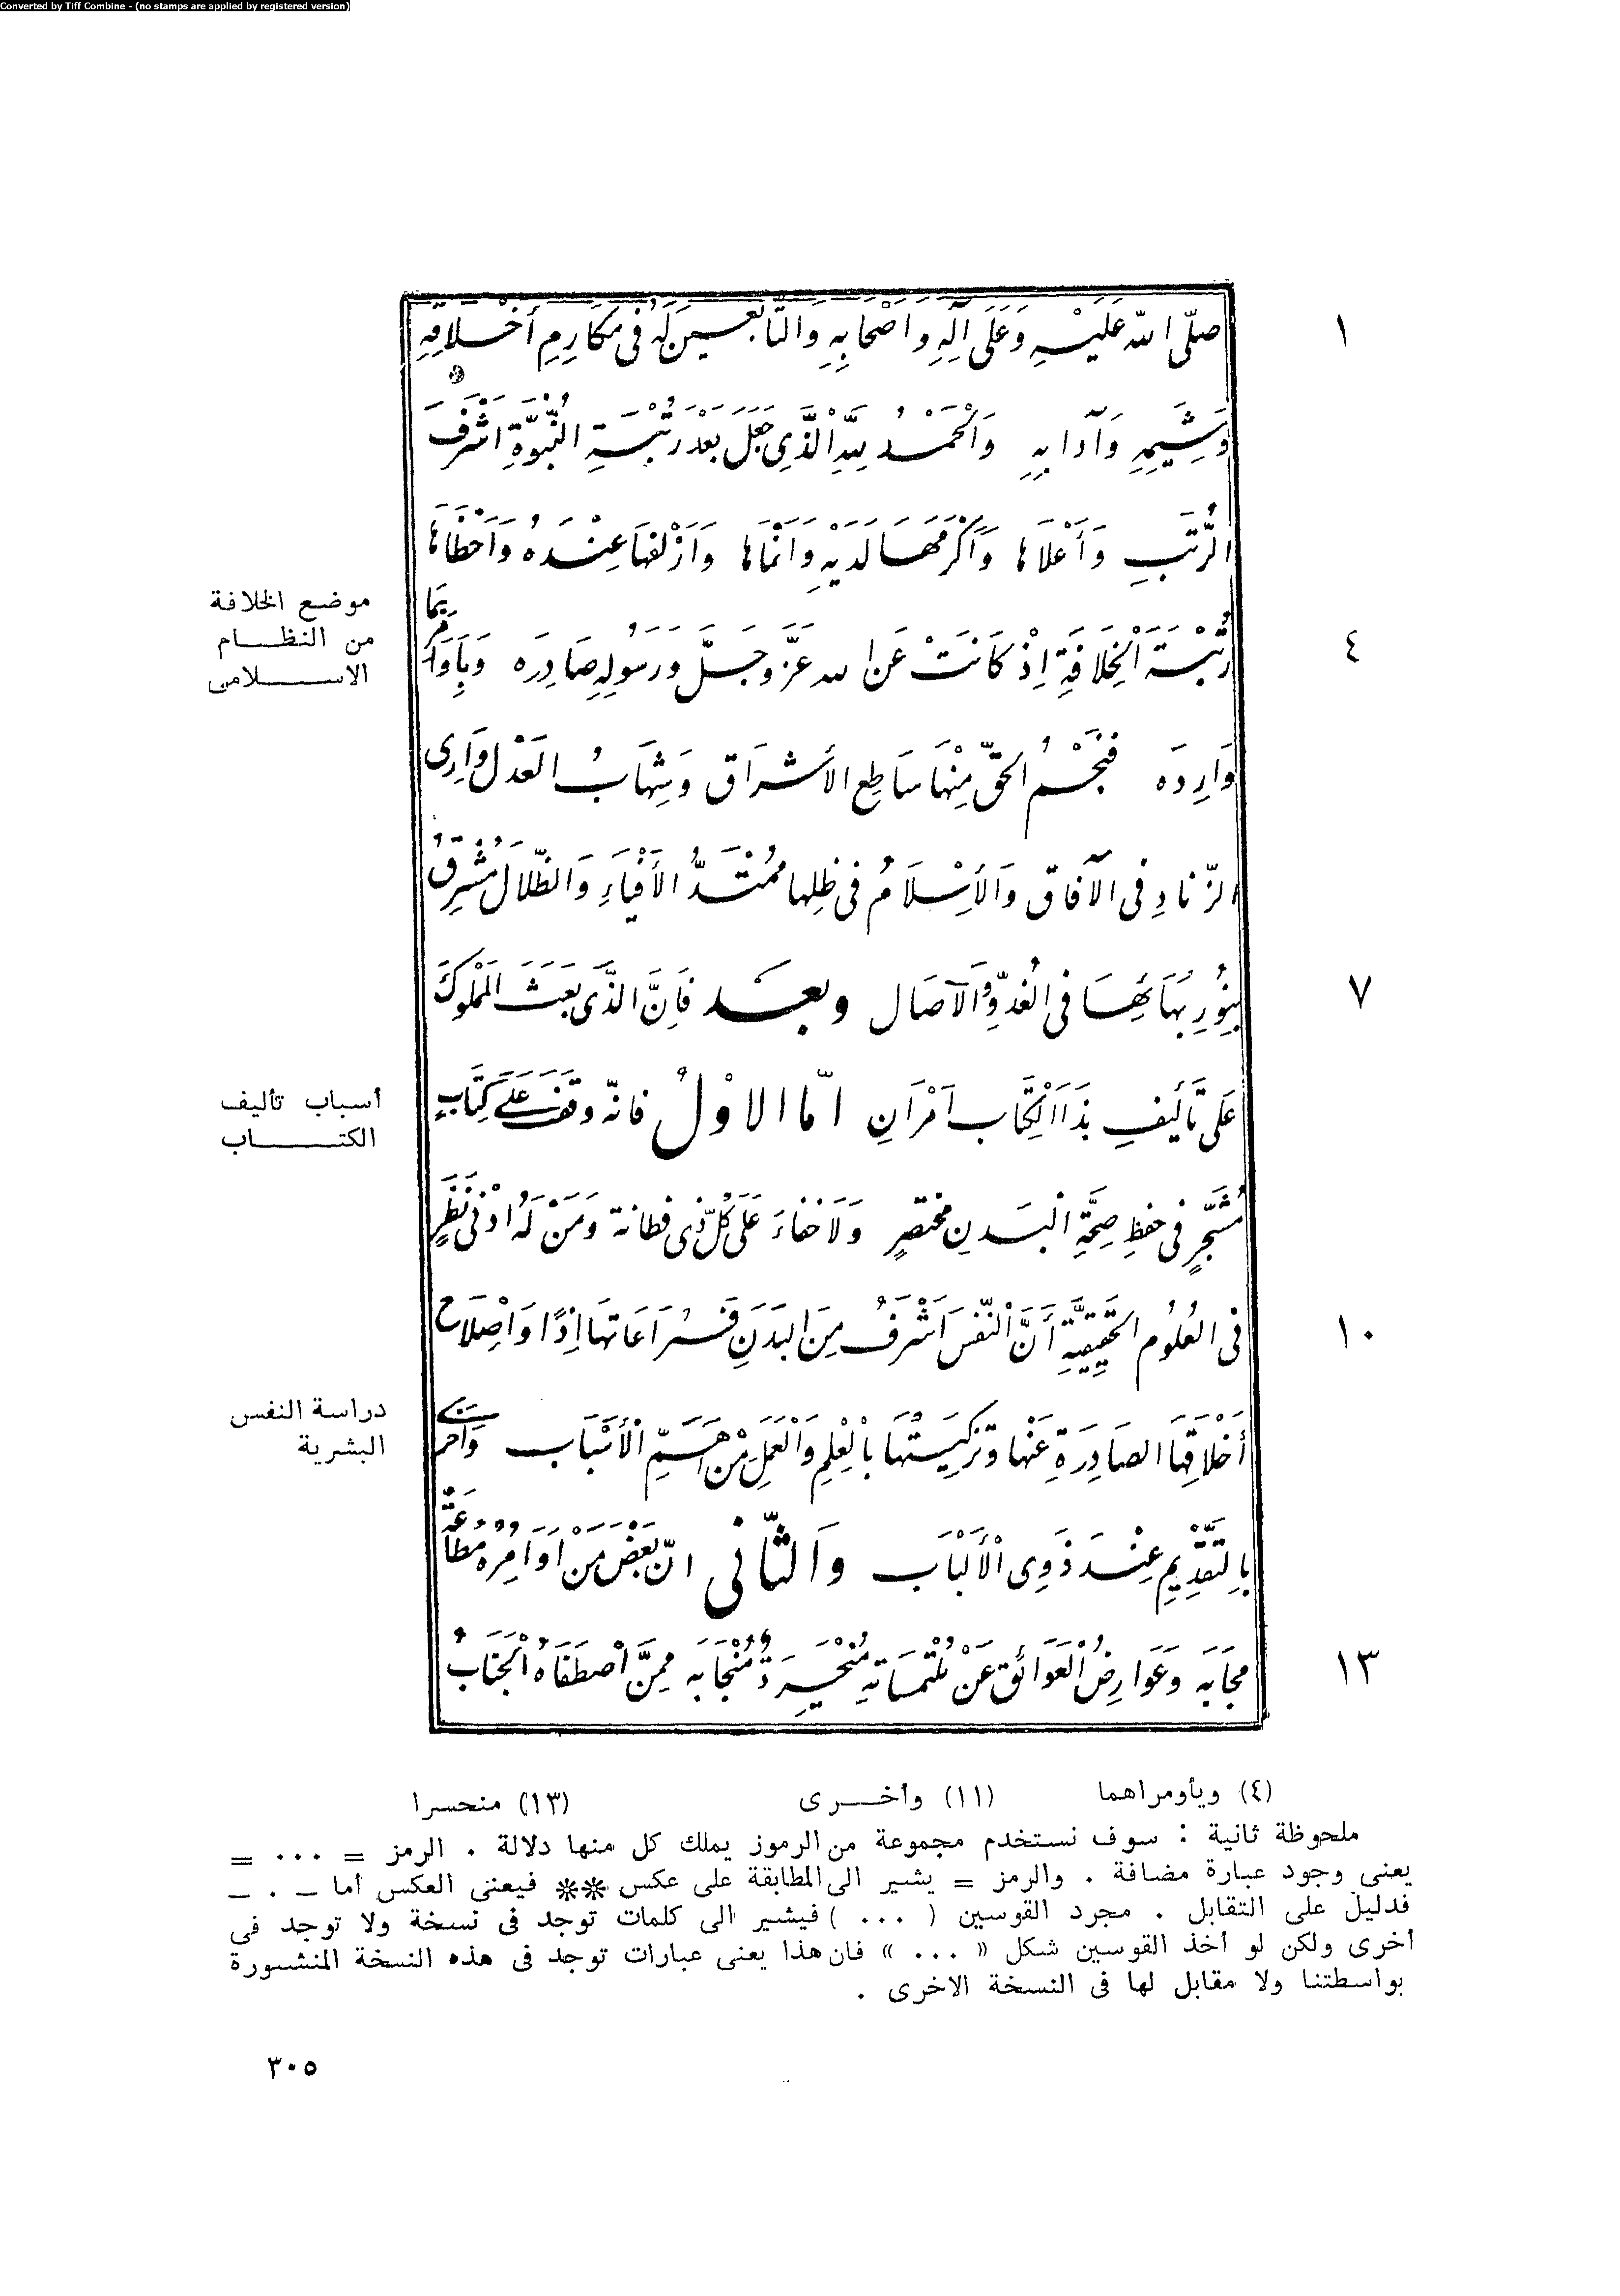 Converted by Tiff Combine - (no stamps are applied by registered version)
١
صلّى الله عَلَيْهِ وَعَلَى آلِهِ وَاصْحابِهِ وَالتّابعينَ لَهُ فى مَكَارِمِ أَخْلَاقِهِ
وَشِيَمِهِ وَآدابِهِ وَالْحَمْدُ لِلَّهِ الَّذِى جَعَلَ بَعْدَ رُتْبَةِ النُّبُوَّةِ اشْرَفَ
الرُّتَبِ وَأَعْلَاهَا وَأَكْرَمَهَا لَدَيْهِ وَانْمَاهَا وَازْلَفَهَا عِنْدَهُ وَاحْظَاهَا
موضع الخلافة
من النظام
الاسلامى
٤
رُتْبَةَ الْخِلَافَةِ اِذْ كَانَتْ عَنِ الله عَزَّ وَجَلَّ وَرَسُولِهِ صَادِرَه وَبِأَوَامِرِهِمَا
وَارِدَه فَنَجْمُ الحَقِّ مِنْهَا سَاطِع الأشراق وَشِهَابُ العَدْلِ وَارِى
الزّنادِ فى الآفاق وَالأِسْلَامُ فى ظِلها مُمْتَدُّ الأَفْيَاءِ وَالظّلال مُشْرِقٌ
٧
بِنُورِ بَهَائِهَا فى الغُدُوِّ وَالآصَال وبعد فَاِنَّ الذَّى بَعَثَ المَمْلُوكَ
أسباب تأليف
الكتاب
عَلى تَأْلِيفِ هذَا الْكِتَاب اَمْرَانِ امّا الاوْلُ فانّه وقف عَلَى كِتَابٍ
مُشَجَّرٍ فى حفظِ صِحَّةِ البَدنِ مختصرٍ وَلَا خفاءَ عَلَى كُلّ ذى فطانة وَمَنْ لَهُ ادْنى نَظَرٍ
١٠
فى العُلُوم الحَقِيقيَّةِ أَنَّ النّفْسَ اَشْرَفُ مِنَ البَدَنِ فَمُرَاعَاتهَا اِذًا وَاِصْلَاح
دراسة النفس
البشرية
أَخْلَاقِهَا الصَادِرَةِ عَنْها وَتزكِيَتُهَا بالْعِلْمِ وَالْعَمَلِ مِنْ اهَمِّ الأسْبَاب وَاَحْرى
بالتَّقْدِيمِ عِنْدَ ذَوِى الأَلْبَاب وَالثّانى انّ بَعْضَ مَنْ اَوَامِرُه مُطَاعَةٌ
١٣
مجَابَه وَعَوارِضُ الْعَوَائِق عَنْ مُلْتَمَسَاتِهِ مُنْحَسِرَةٌ مُنْجَابَه مِمَّنِ اصْطَفَاهُ الْجَنَابُ
(٤) وبأومراهما (١١) وأخرى (١٣) منحسرا
ملحوظة ثانية : سوف نستخدم مجموعة من الرموز يملك كل منها دلالة . الرمز = ... =
يعنى وجود عبارة مضافة . والرمز = يشير الى المطابقة على عكس ** فيعنى العكس أما – . –
فدليل على التقابل . مجرد القوسين ( ... ) فيشير الى كلمات توجد فى نسخة ولا توجد فى
أخرى ولكن لو أخذ القوسين شكل « ... » فان هذا يعنى عبارات توجد فى هذه النسخة المنشورة
بواسطتنا ولا مقابل لها فى النسخة الاخرى .
٣٠٥